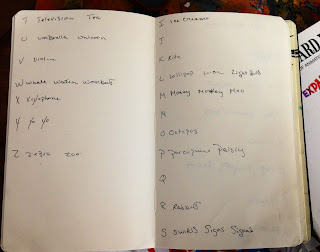 T Television Tea
U umbrella unicorn
V Violin
W whale water wombat
X Xylophone
Y yo yo
Z Zebra zoo
I ice cream
J
K Kite
L Lollipop lion light
M Money Monkey
N
O Octopus
P porcupine
Q
R Rabbit
S swirls signs
ARD
EXP